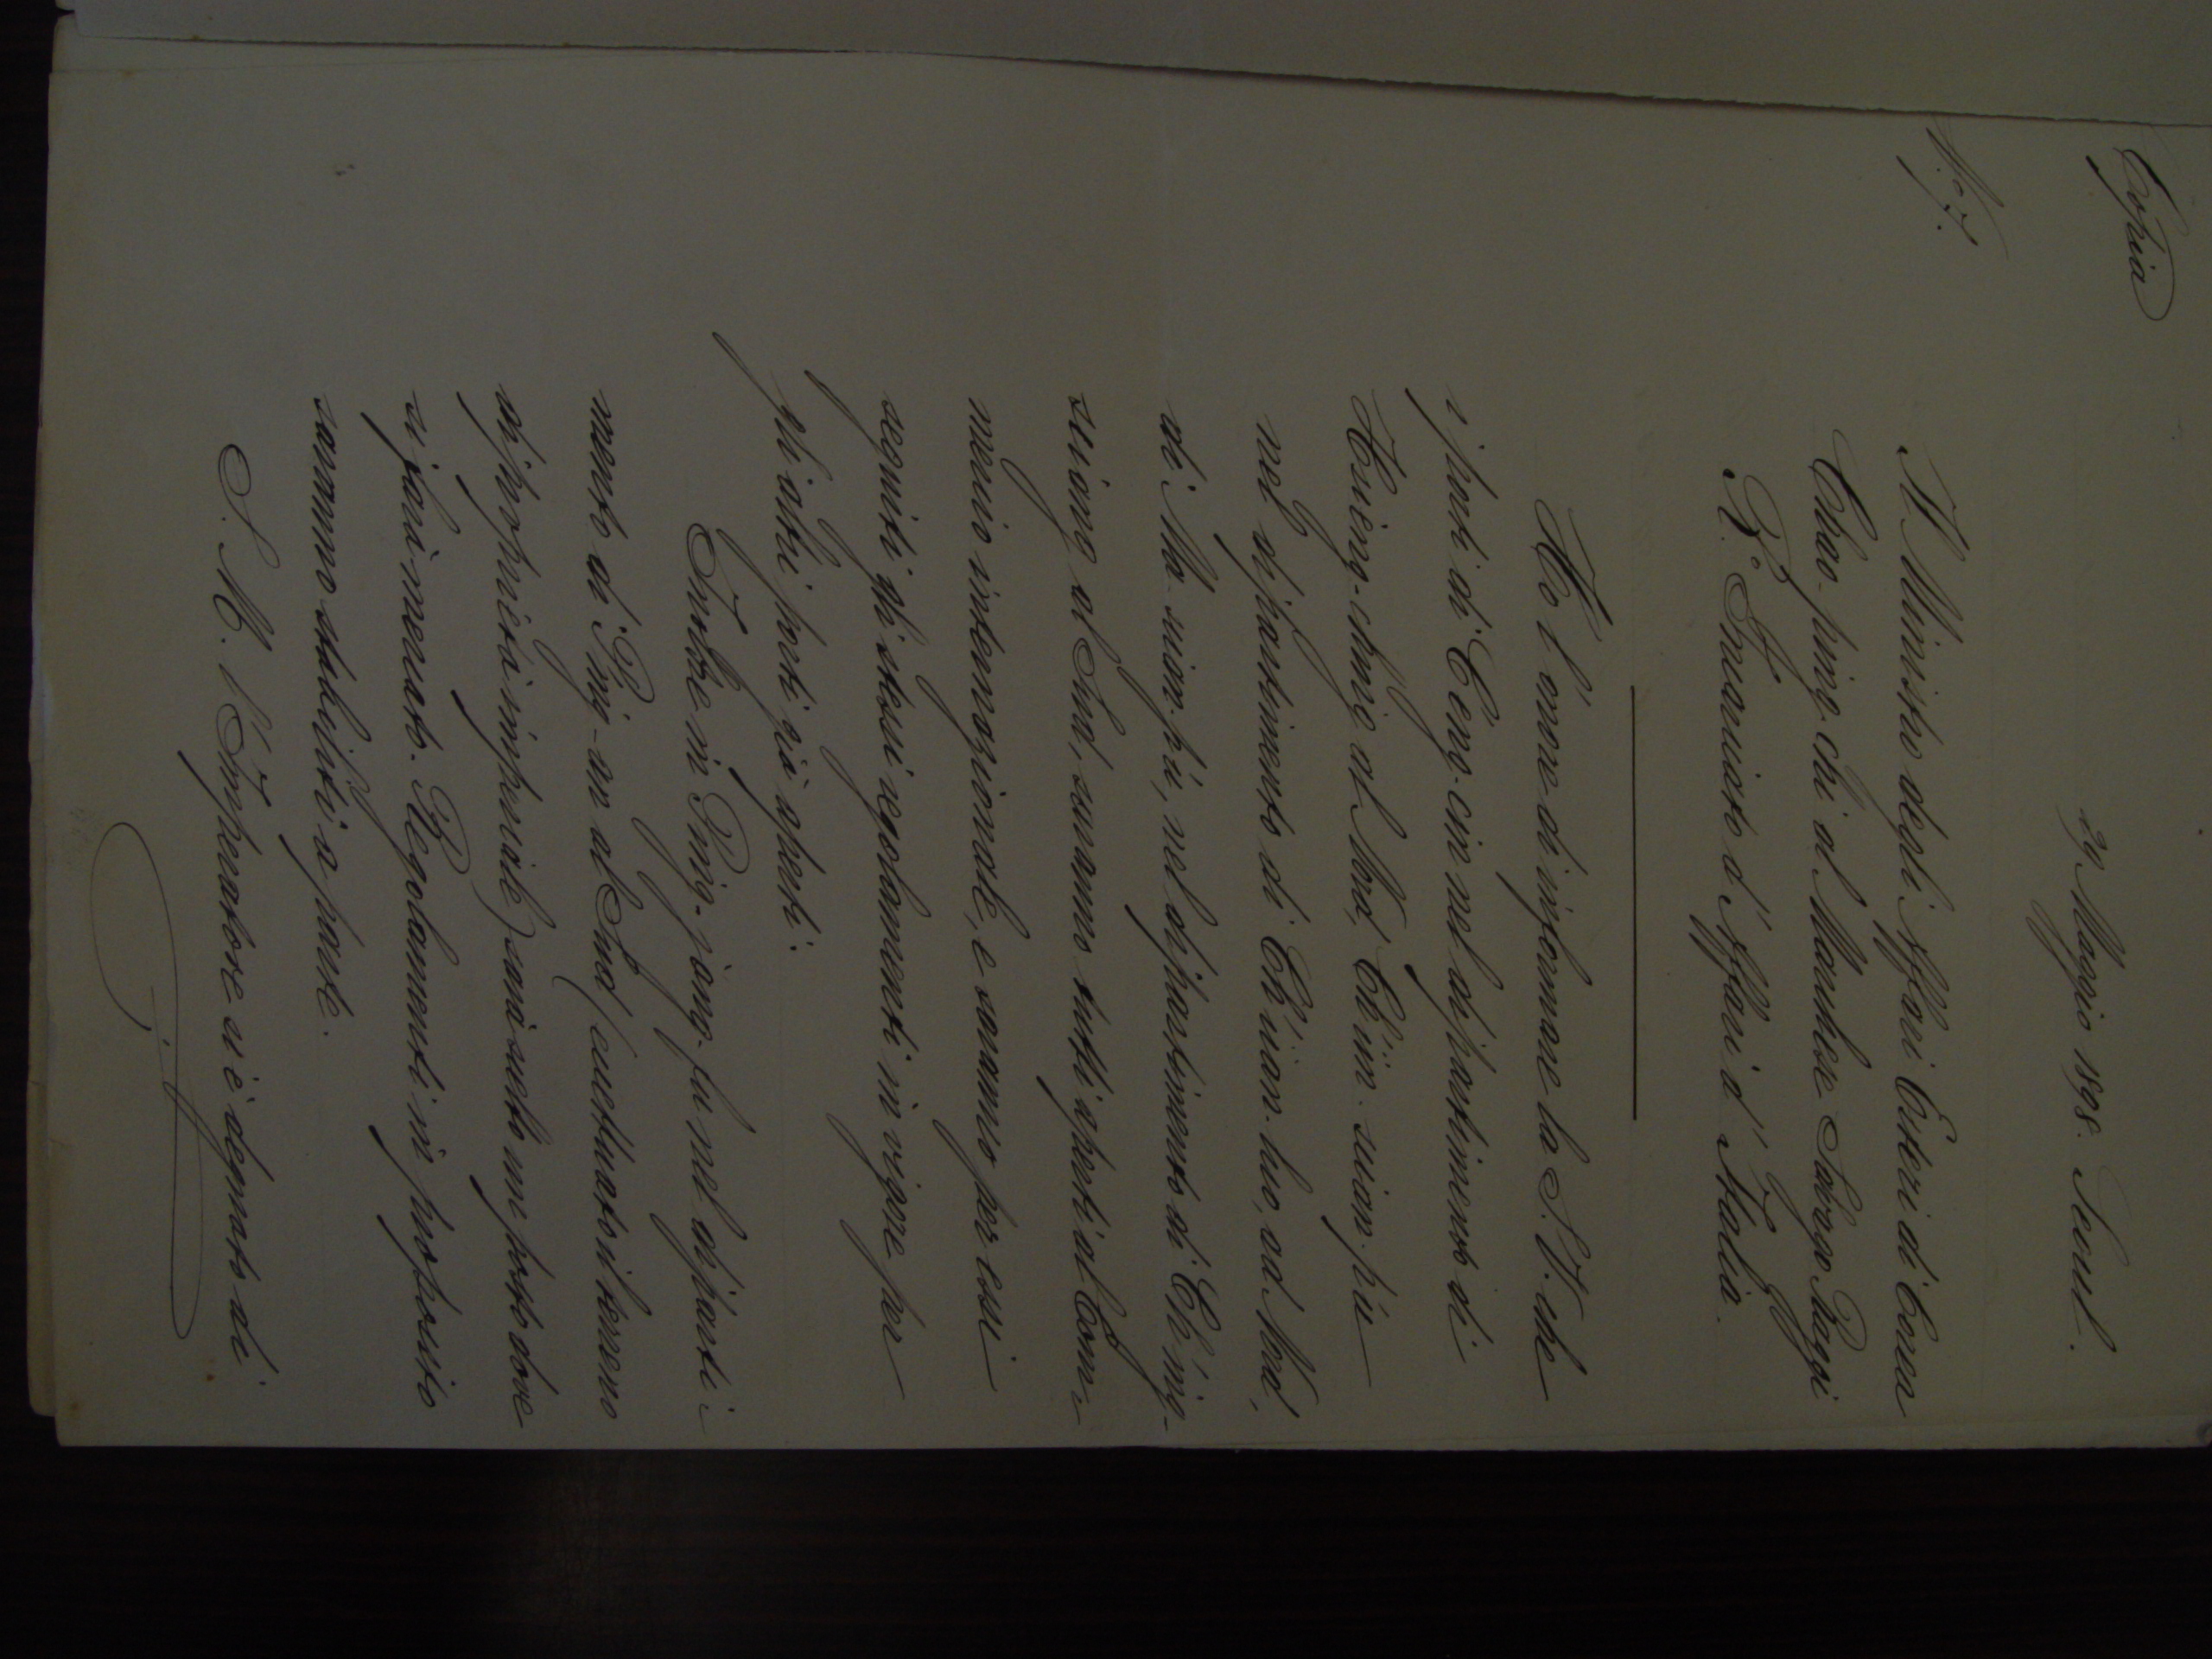 Copia
29 Maggio 1898. Seoul.
N.o 7.
Il Ministro degli Affari Esteri di Corea
Chao-ping-chi al Marchese Salvago Raggi
R.o Incaricato d'Affari d'Italia.
Ho l'onore di informare la S.V. che
i porti di Ceng-cin nel dipartimento di
Hsieng-ching al Nord, Ch'ün-scian-pú
nel dipartimento di Ch'üan-luo, ad Nord,
di Ma-scian-pú, nel dipartimento di Ch'ing-
sciang al Sud, saranno tutti aperti al Com-
mercio internazionale, e saranno per essi
seguiti gli stessi regolamenti in vigore per
gli altri porti già aperti.
Inoltre in Ping-jàng-fu nel diparti-
mento di Ping-an al Sud (eccettuato il terreno
di proprietà imperiale) sarà scelto un posto dove
si farà mercato. Regolamenti in proposito
saranno stabiliti a parte.
S. M. l'Imperatore si è degnato di